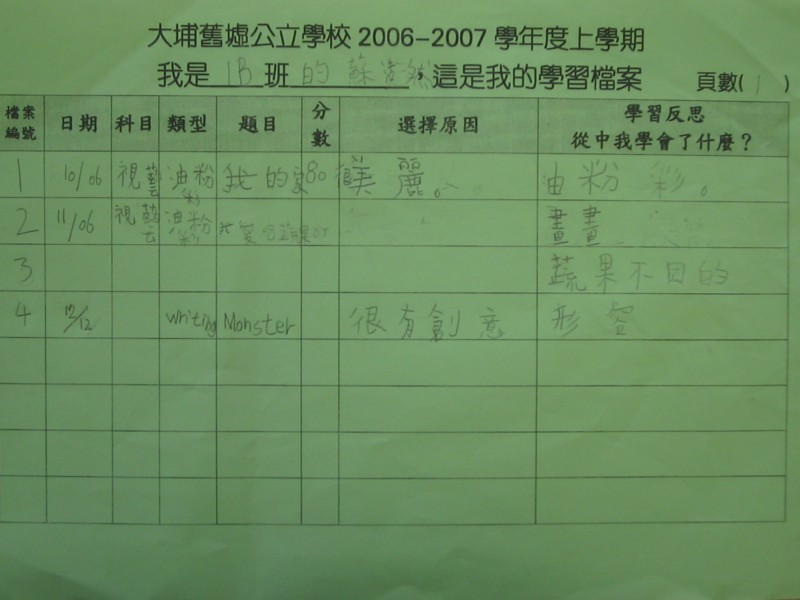 大埔舊墟公立學校 2006-2007 學年度上學期
我是 1B 班 的 蘇 然，這是我的學習檔案 頁數( 1 )
檔案編號 日期 科目 類型 題目 分數 選擇原因 學習反思 從中我學會了什麼？
1 10/06 視藝 油粉彩 我的家 80 很美麗。 油粉彩。
2 11/06 視藝 油粉彩 畫畫
3 蔬果不同的
4 12/12 writing Monster 很有創意 形容